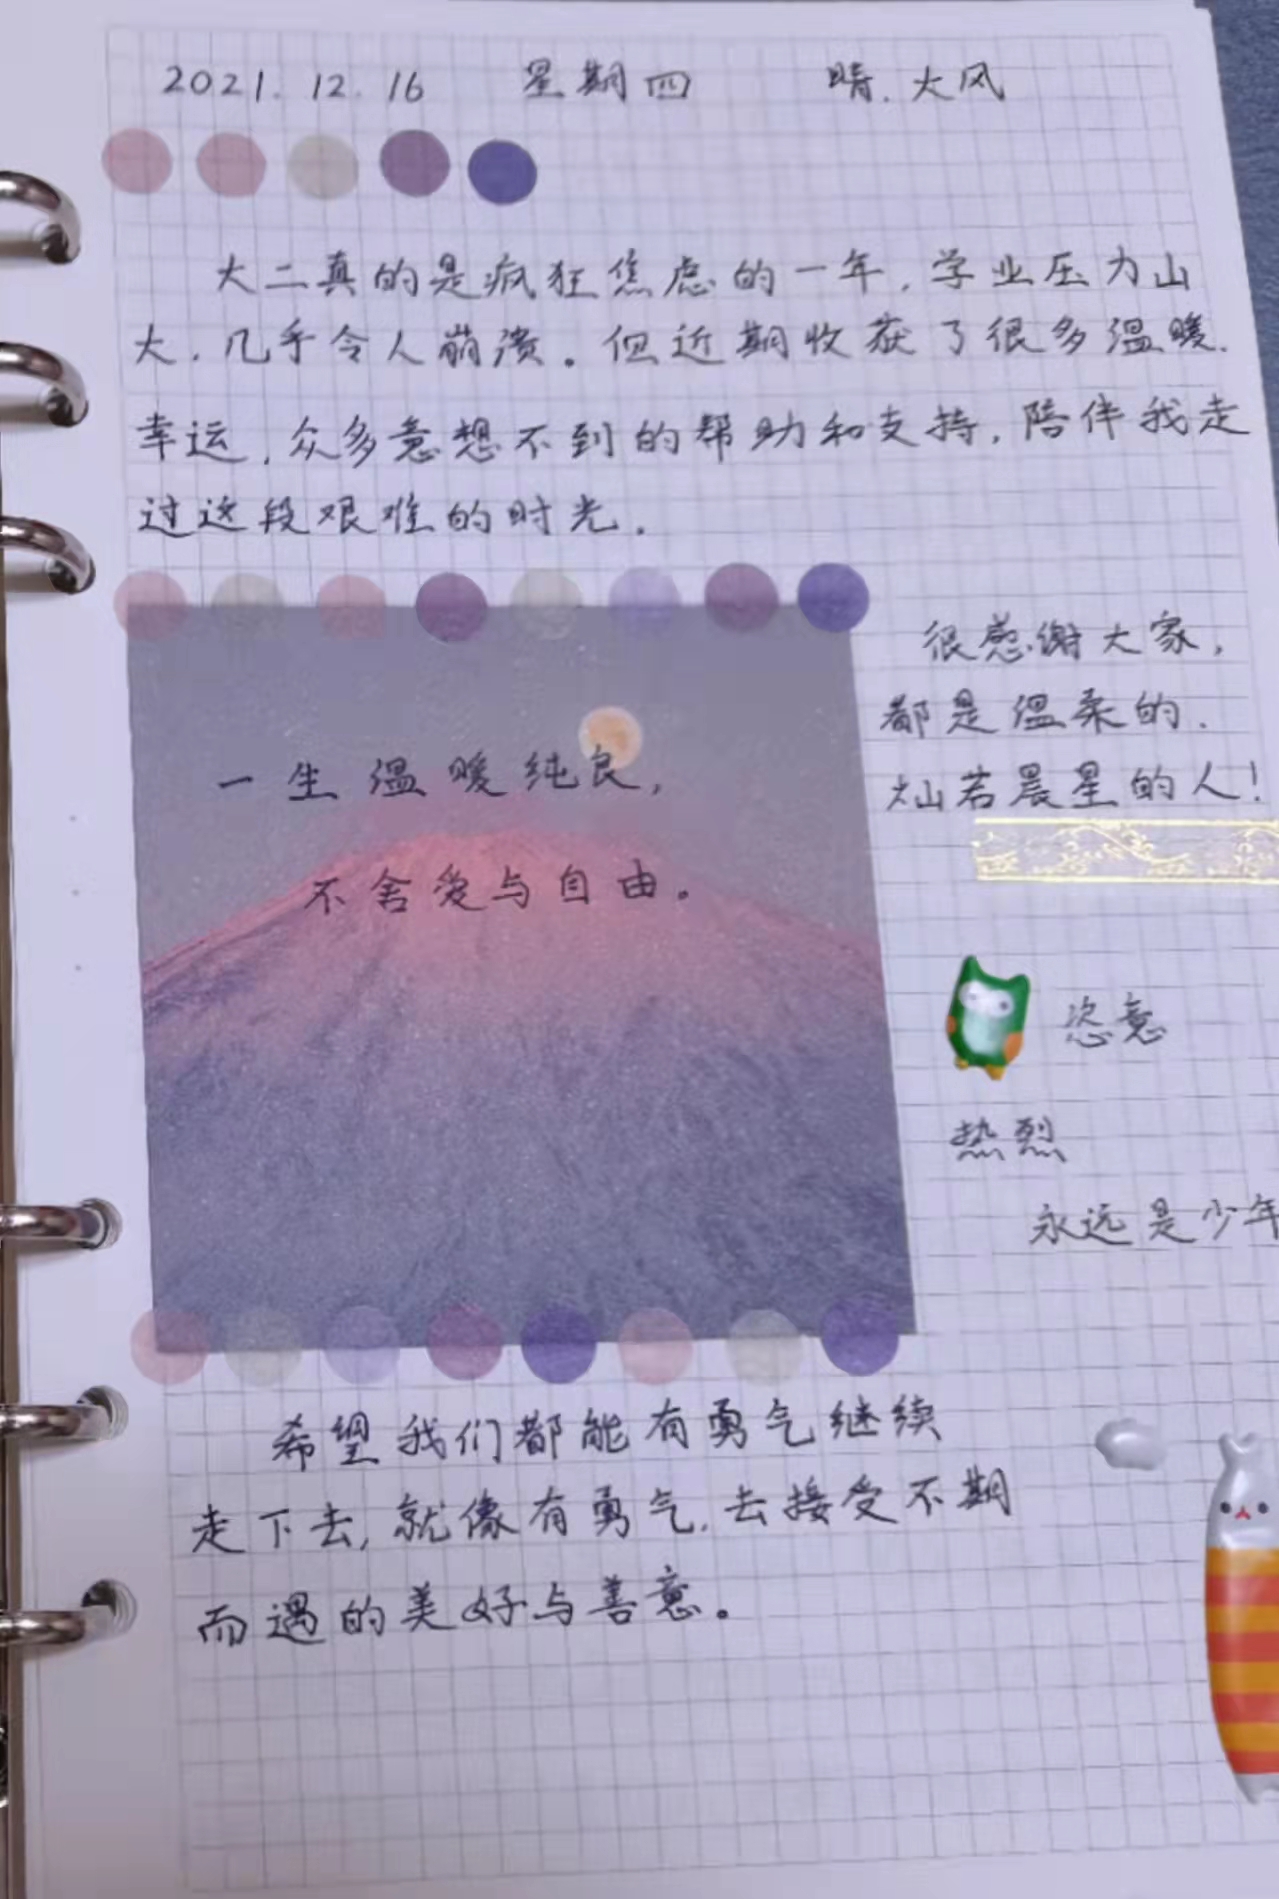 2021.12.16 星期四 晴.大风
大二真的是疯狂焦虑的一年,学业压力山
大,几乎令人崩溃。但近期收获了很多温暖.
幸运,众多意想不到的帮助和支持,陪伴我走
过这段艰难的时光.
很感谢大家,
都是温柔的.
灿若晨星的人!
一生温暖纯良,
不舍爱与自由。
恣意
热烈
永远是少年
希望我们都能有勇气继续
走下去,就像有勇气,去接受不期
而遇的美好与善意。